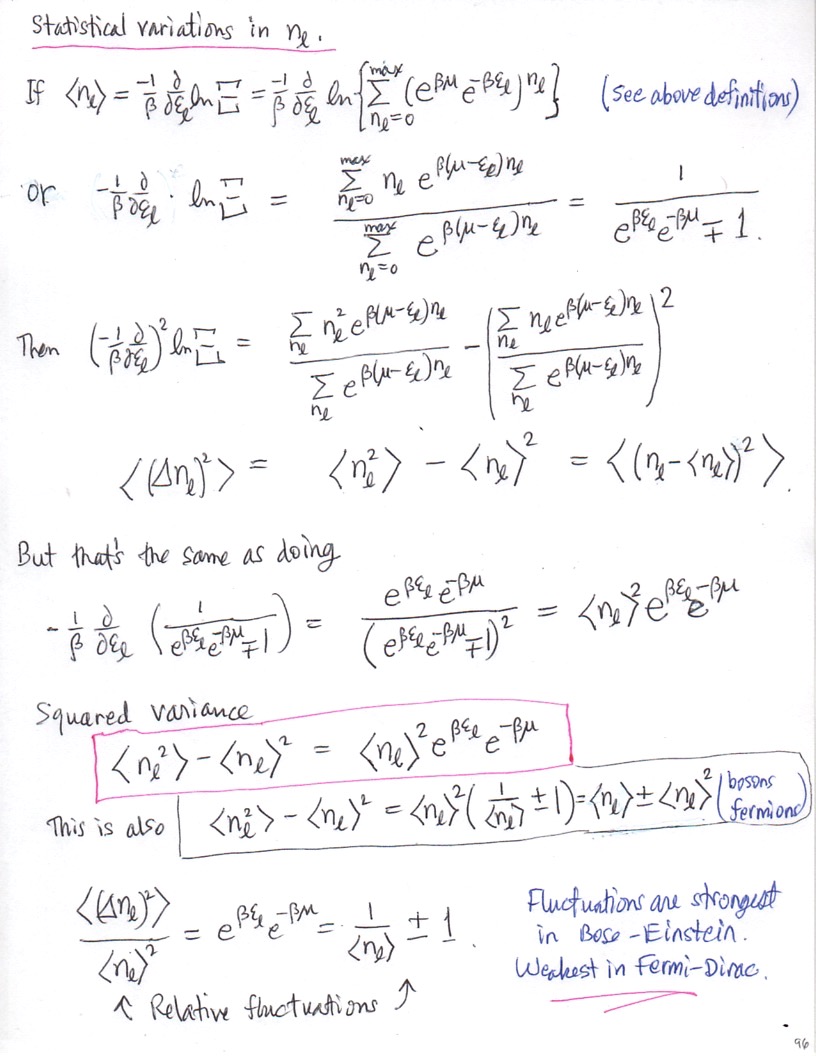 Statistical variations in nₗ.
If ⟨nₗ⟩ = -1/β ∂/∂εₗ ln Ξ = -1/β ∂/∂εₗ ln { max Σ nₗ=0 (e^{βμ} e^{-βεₗ})^{nₗ} } (see above definitions)
or -1/β ∂/∂εₗ · ln Ξ = (max Σ nₗ=0 nₗ e^{β(μ-εₗ)nₗ}) / (max Σ nₗ=0 e^{β(μ-εₗ)nₗ}) = 1 / (e^{βεₗ} e^{-βμ} ∓ 1).
Then (-1/β ∂/∂εₗ)² ln Ξ = (Σ nₗ nₗ² e^{β(μ-εₗ)nₗ}) / (Σ nₗ e^{β(μ-εₗ)nₗ}) - ( (Σ nₗ nₗ e^{β(μ-εₗ)nₗ}) / (Σ nₗ e^{β(μ-εₗ)nₗ}) )²
⟨(Δnₗ)²⟩ = ⟨nₗ²⟩ - ⟨nₗ⟩² = ⟨(nₗ-⟨nₗ⟩)²⟩.
But that's the same as doing
-1/β ∂/∂εₗ ( 1 / (e^{βεₗ} e^{-βμ} ∓ 1) ) = e^{βεₗ} e^{-βμ} / (e^{βεₗ} e^{-βμ} ∓ 1)² = ⟨nₗ⟩² e^{βεₗ} e^{-βμ}
Squared variance
⟨nₗ²⟩ - ⟨nₗ⟩² = ⟨nₗ⟩² e^{βεₗ} e^{-βμ}
This is also ⟨nₗ²⟩ - ⟨nₗ⟩² = ⟨nₗ⟩² ( 1/⟨nₗ⟩ ± 1 ) = ⟨nₗ⟩ ± ⟨nₗ⟩² (bosons fermions
⟨(Δnₗ)²⟩ / ⟨nₗ⟩² = e^{βεₗ} e^{-βμ} = 1/⟨nₗ⟩ ± 1.
↑ Relative fluctuations ↑
Fluctuations are strongest
in Bose-Einstein.
Weakest in Fermi-Dirac.
96